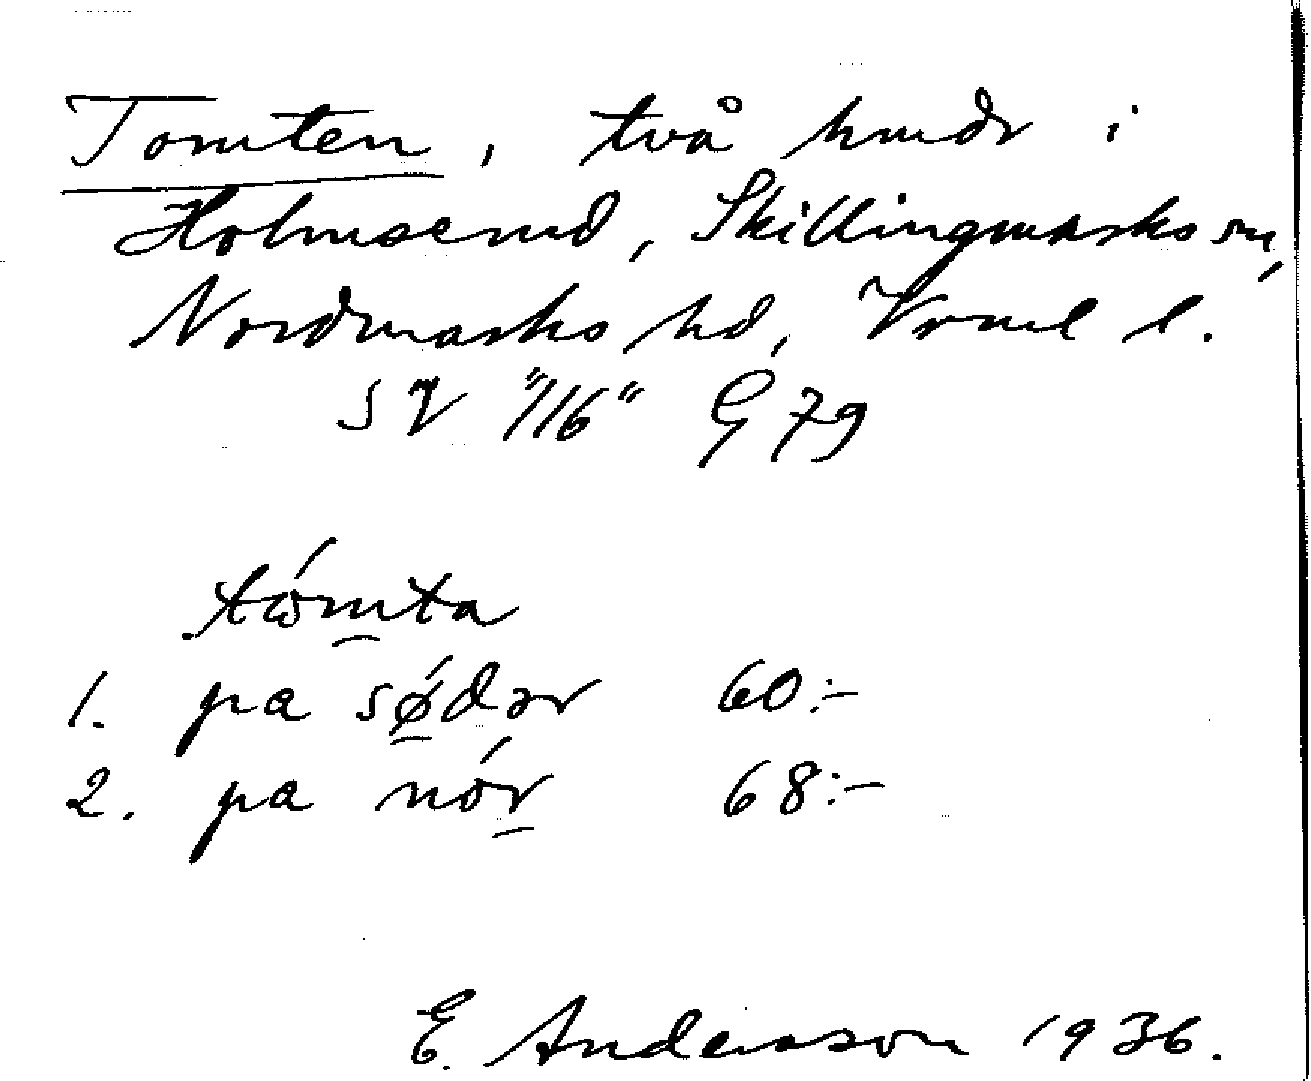 Tomten, två hmdr i
Holmserud, Skillingmarks sn,
Nordmarks hd, Vrml l.
SV "/16" G 79
tómta
1. pa sǿdər 60:-
2. pa nór 68:-
E. Andersson 1936.